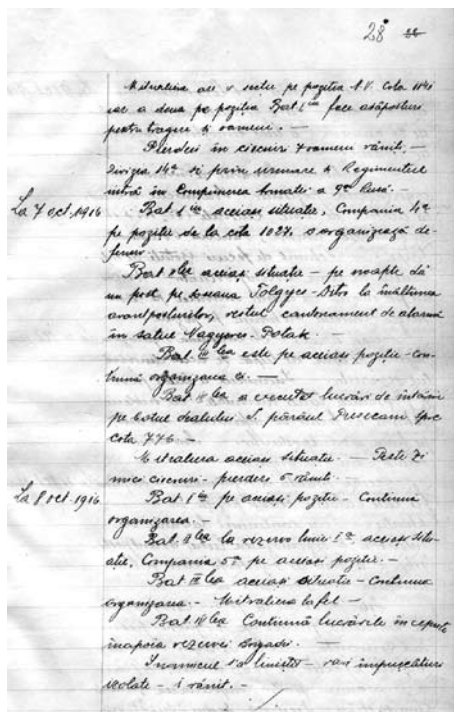 28
Mitraliera are o secție pe poziția N.V. Cota
iar a doua pe poziția Bat I face adăposturi
pentru trageri și oameni. —
Pierderi în ciocniri 7 oameni răniți. —
Divizia 14ª și prin urmare și Regimentul
intră în Compunerea Armatei a 9ª Rusă. —
La 7 oct. 1916
Bat. I aceiași situație, Compania 4ª
pe poziție de la cota 1027, o organizează de-
fensiv
Bat II lea aceiași situație — pe noapte dă
un post pe șoseaua Tolgyes - Bistro la înălțimea
avantposturilor, restul cantonament de alarmă
în satul Nagyeres - Potak. —
Bat. III lea este pe aceiași poziție — con-
tinuă organizarea ei. —
Bat IV lea a executat lucrări de întărire
pe botul dealului S. pârâul Presecani spre
cota 776 —
Mitraliera aceiași situație — Peste zi
mici ciocniri — pierderi 5 răniți.
La 8 oct. 1916
Bat. I pe aceiași poziție — Continuă
organizarea. —
Bat. II lea la rezerva liniei I, aceiași situ-
ație, Compania 5ª pe aceiași poziție. —
Bat III lea aceiași situație — continuă
organizarea. — Mitraliera la fel —
Bat. IV lea Continuă lucrările începute
înapoia rezervei Brigadei. —
Inamicul s'a liniștit — rari împușcături
izolate — 1 rănit. —